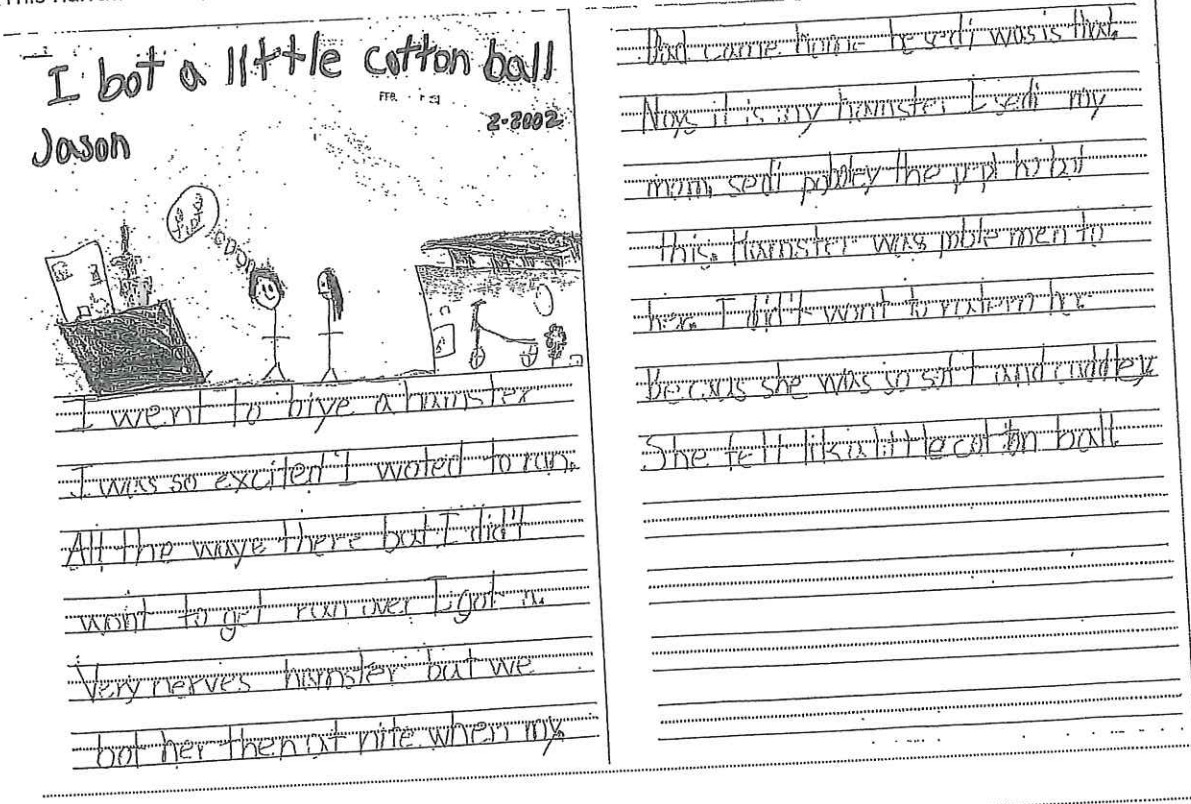 I bot a little cotton ball
2-2002
Jason
I went to biye a hamster
I was so exciten I woted to run.
All the waye there but I did't
wont to get run over I got a
Very nerves hamster but we
bot her then at nite when my
Dad came home he sedi wasis that.
Noys it is my hamster I sedi my
mom sedi the
this. Hamster was to
her. I did't want to her
Becaus she was so soft and cuddley
She felt lik a little cotton ball.